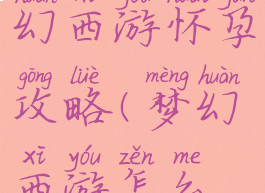 幻西游怀孕
gōng lüè mèng huàn
攻略(梦幻
xī yóu zěn me
西游怎么